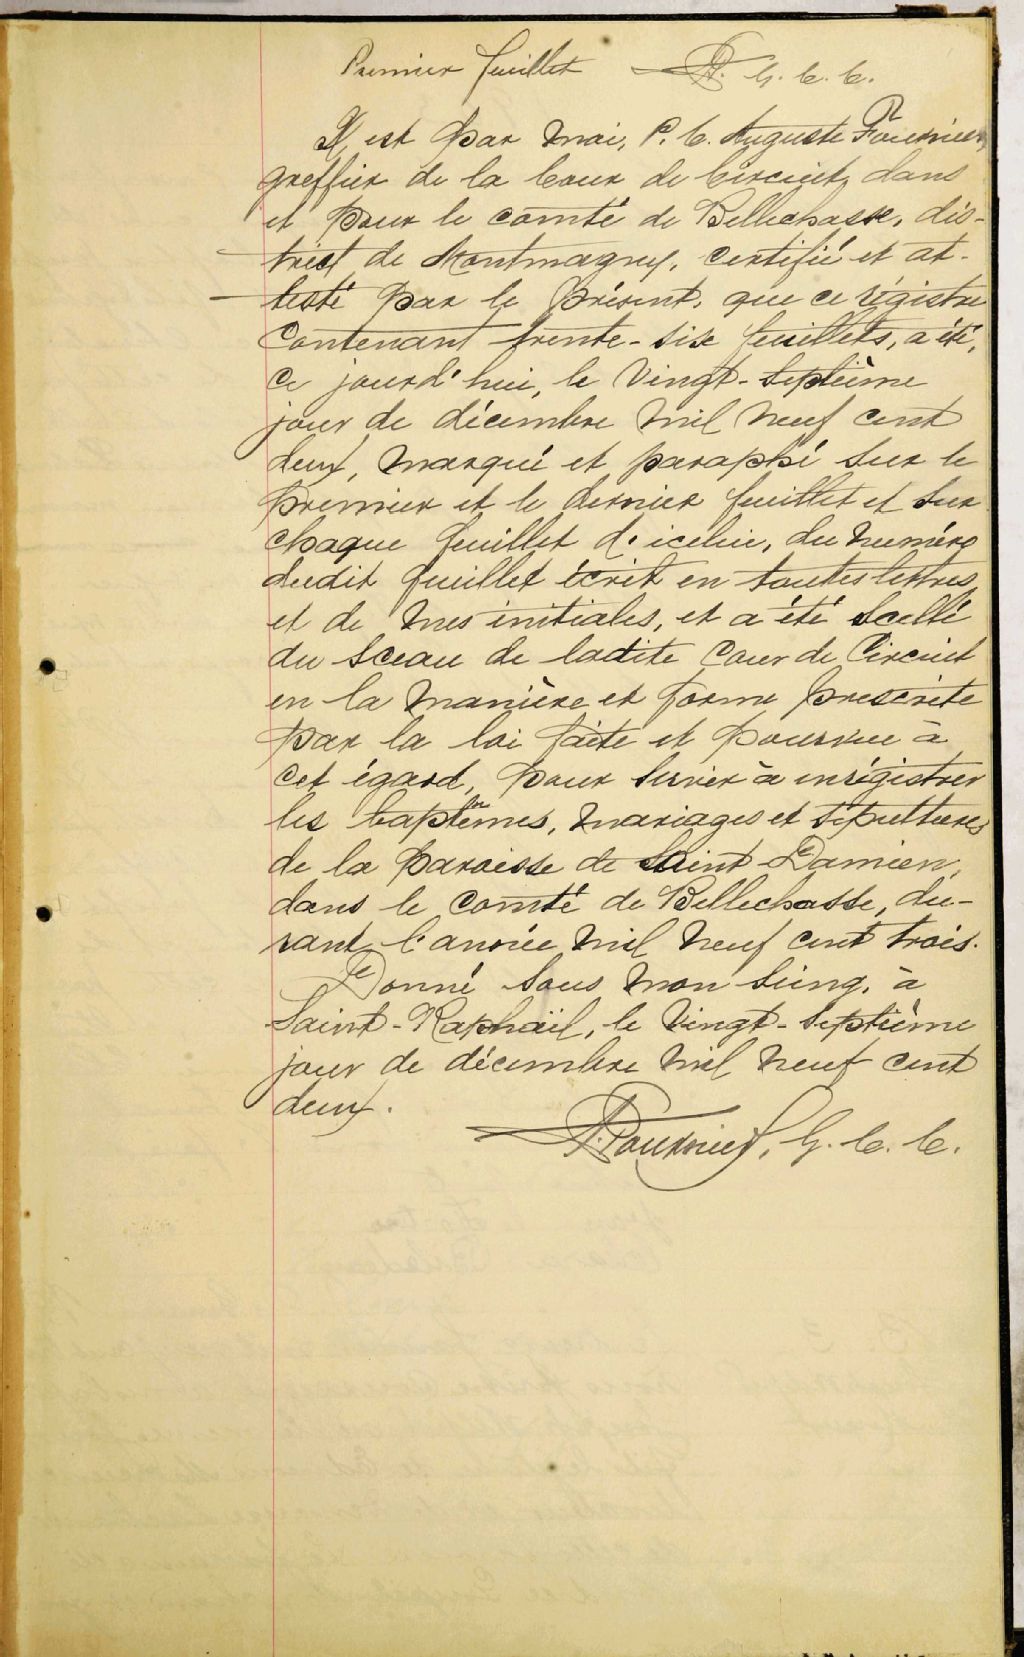 Premier feuillet A. G. C. C.
Il est par moi, P. C. Auguste Fournier,
greffier de la Cour de Circuit, dans
et pour le comté de Bellechasse, dis-
trict de Montmagny, certifié et at-
testé par le présent, que ce régistre
contenant trente-six feuillets, a été,
ce jourd'hui, le vingt-septième
jour de décembre mil neuf cent
deux, marqué et paraphé sur le
premier et le dernier feuillet et sur
chaque feuillet d'icelui, du numéro
dudit feuillet écrit en toutes lettres
et de mes initiales, et a été scellé
du sceau de ladite Cour de Circuit
en la manière et forme prescrite
par la loi faite et pourvue à
cet égard, pour servir à enrégistrer
les baptêmes, mariages et sépultures
de la paroisse de Saint-Damien,
dans le comté de Bellechasse, du-
rant l'année mil neuf cent trois.
Donné sous mon seing, à
Saint-Raphaël, le vingt-septième
jour de décembre mil neuf cent
deux.
A. Fournier, G. C. C.